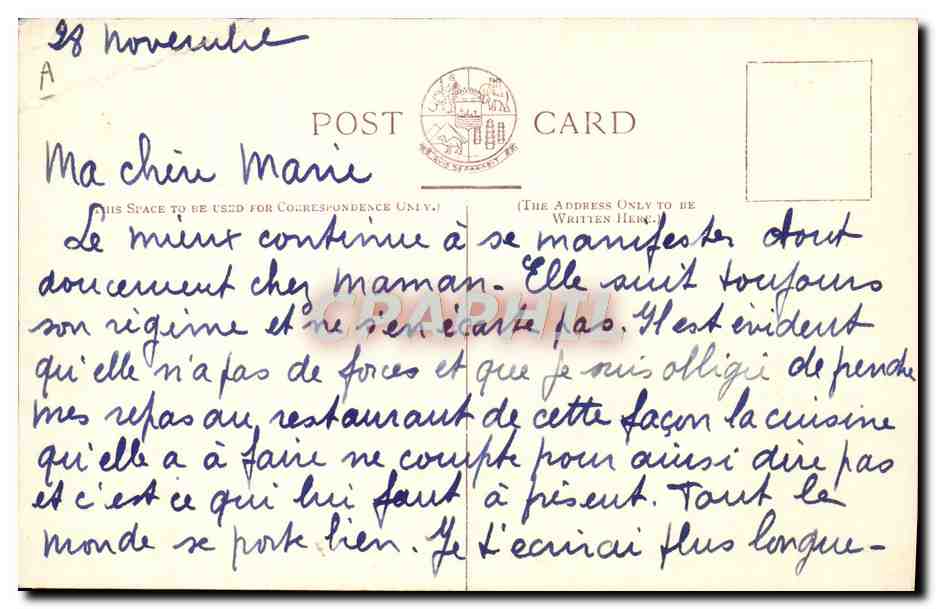 28 novembre
A
POST CARD
Ma chère Marie
(This Space to be used for Correspondence Only.)
(The Address Only to be
Written Here.)
Le mieux continue à se manifester tout
doucement chez maman. Elle suit toujours
son régime et ne s'en écarte pas. Il est évident
qu'elle n'a pas de forces et que je suis obligé de prendre
mes repas au restaurant de cette façon la cuisine
qu'elle a à faire ne compte pour ainsi dire pas
et c'est ce qui lui faut à présent. Tout le
monde se porte bien. Je t'écrirai plus longue-
CPAPHIL